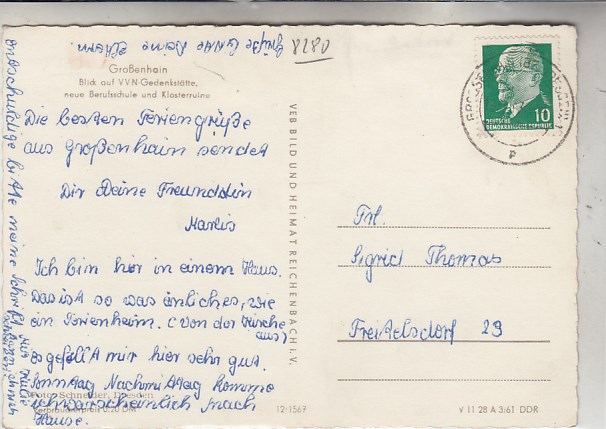 Großenhain
Blick auf VVN-Gedenkstätte,
neue Berufsschule und Klosterruine
Die besten Feriengrüße
aus Großenhain sendet
Dir Deine Freunddin
Ich bin hier in einem Haus.
Das ist so was änliches, wie
ein Ferienheim. (von der Kirche
aus)
es gefällt mir hier sehr gut.
Sonntag Nachmittag komme
ich warscheinlich nach
Hause.
Foto: Schneider, Dresden
Verbraucherpreis 0,20 DM
entschuldige bitte meine Schrift
Grüße Deine Eltern
8280
VEB BILD UND HEIMAT REICHENBACH I. V.
12-1567
DEUTSCHE
DEMOKRATISCHE REPUBLIK
10
P
Frl.
Sigrid Thomas
Freitelsdorf 29
V 11 28 A 3/61 DDR